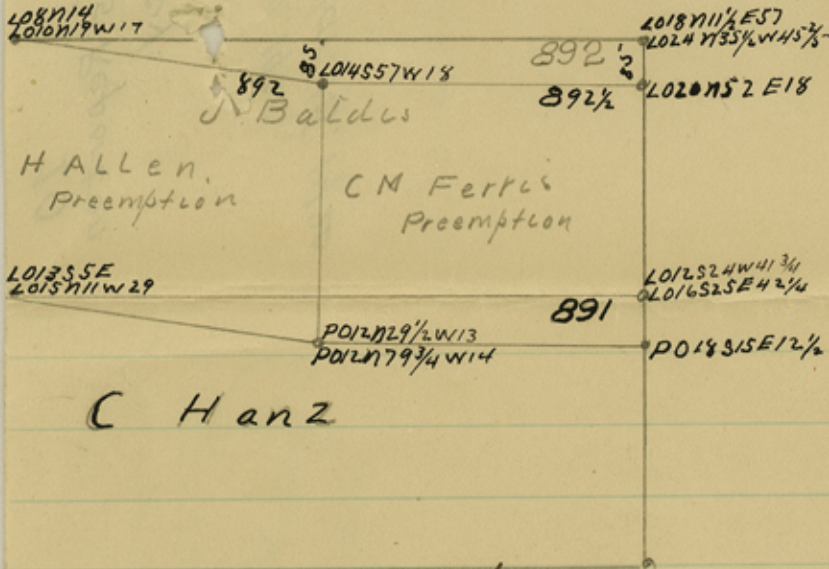 LO8N14
LO10N19W17
LO18N11½E57
LO24N35½W45⅖
892
85'
85'
LO14S57W18
892
892½
LO20N52E18
J Baldis
H ALLen.
Preemption
C M Ferris
Preemption
LO13S5E
LO15N11W29
LO12S24W41¾
LO16S25E42¼
891
PO12N29½W13
PO12N79¾W14
PO18S15E12½
C Hanz